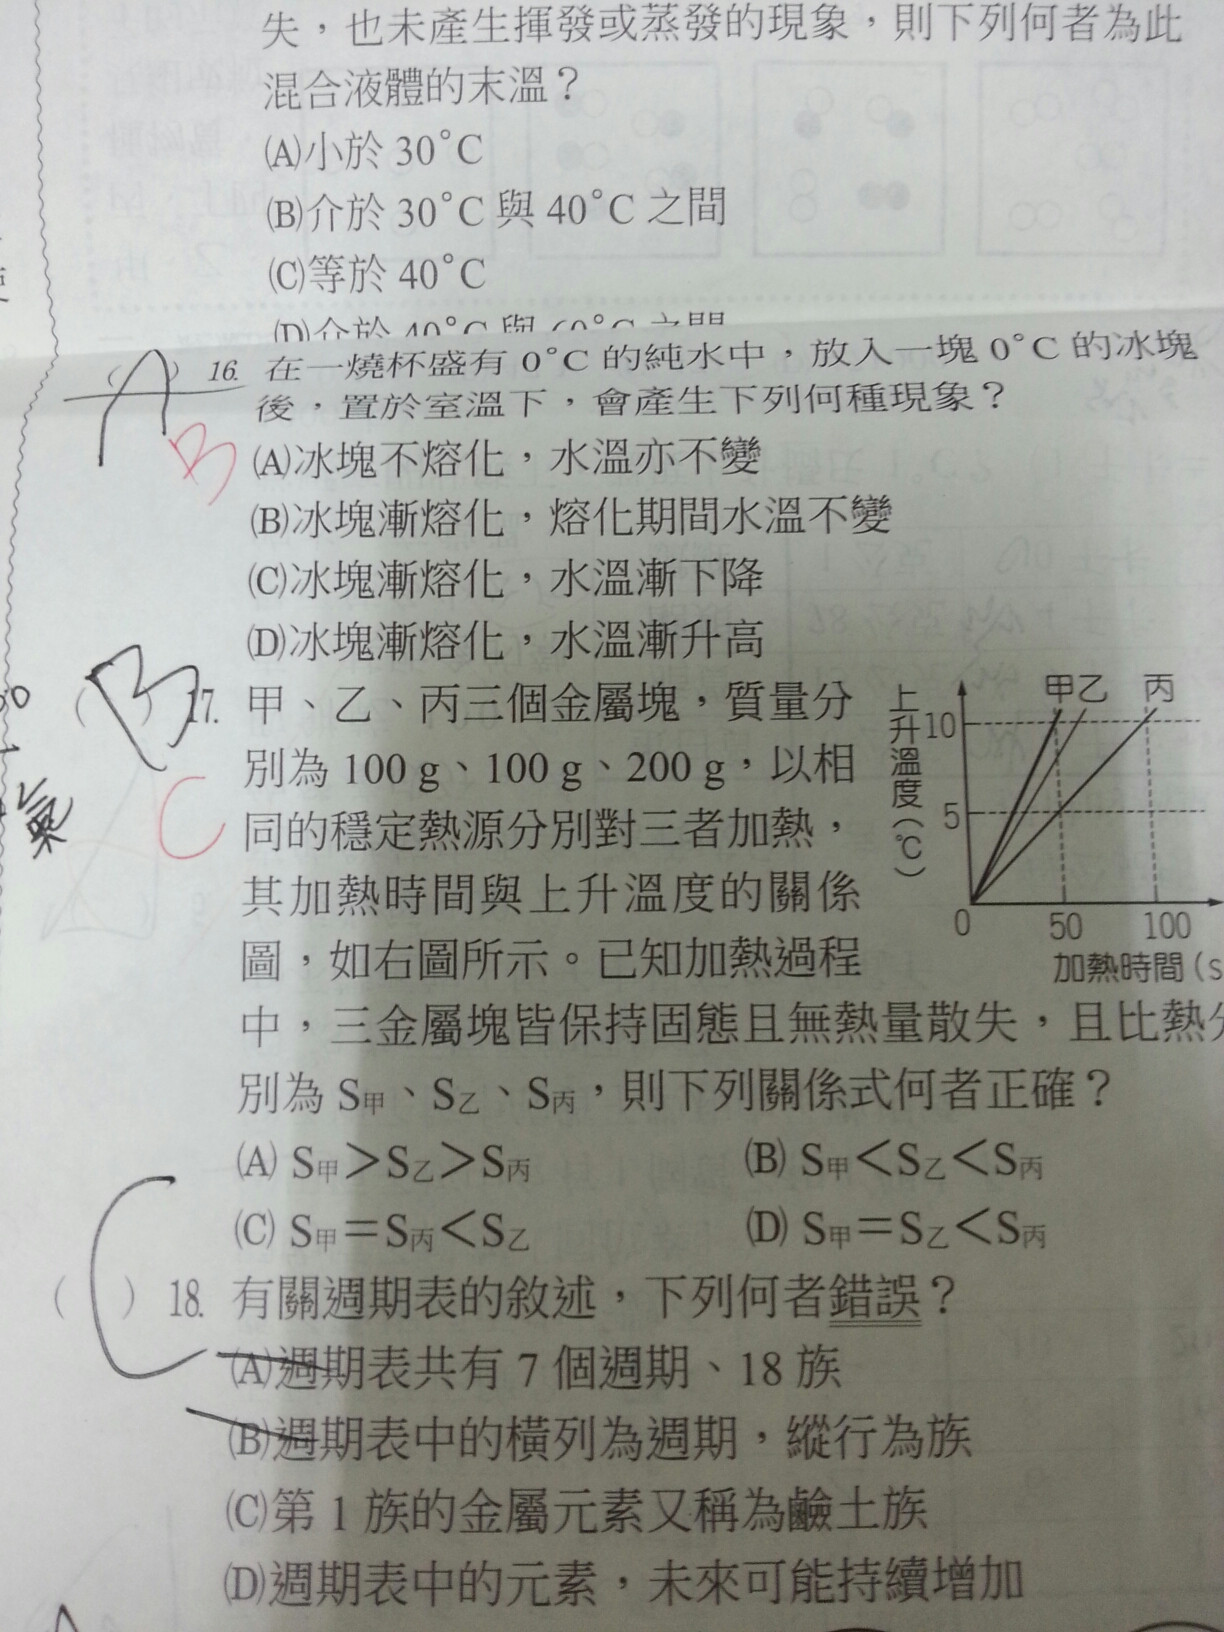 失，也未產生揮發或蒸發的現象，則下列何者為此
混合液體的末溫？
(A)小於 30°C
(B)介於 30°C 與 40°C 之間
(C)等於 40°C
(D)介於 40°C 與 60°C 之間
A
( ) 16. 在一燒杯盛有 0°C 的純水中，放入一塊 0°C 的冰塊
後，置於室溫下，會產生下列何種現象？
B
(A)冰塊不熔化，水溫亦不變
(B)冰塊漸熔化，熔化期間水溫不變
(C)冰塊漸熔化，水溫漸下降
(D)冰塊漸熔化，水溫漸升高
B
( ) 17. 甲、乙、丙三個金屬塊，質量分
別為 100 g、100 g、200 g，以相
C
同的穩定熱源分別對三者加熱，
其加熱時間與上升溫度的關係
圖，如右圖所示。已知加熱過程
中，三金屬塊皆保持固態且無熱量散失，且比熱分
別為 S甲、S乙、S丙，則下列關係式何者正確？
上升溫度(°C)
甲 乙 丙
10
5
0 50 100
加熱時間(s
(A) S甲＞S乙＞S丙 (B) S甲＜S乙＜S丙
(C) S甲＝S丙＜S乙 (D) S甲＝S乙＜S丙
C
( ) 18. 有關週期表的敘述，下列何者錯誤？
(A)週期表共有 7 個週期、18 族
(B)週期表中的橫列為週期，縱行為族
(C)第 1 族的金屬元素又稱為鹼土族
(D)週期表中的元素，未來可能持續增加